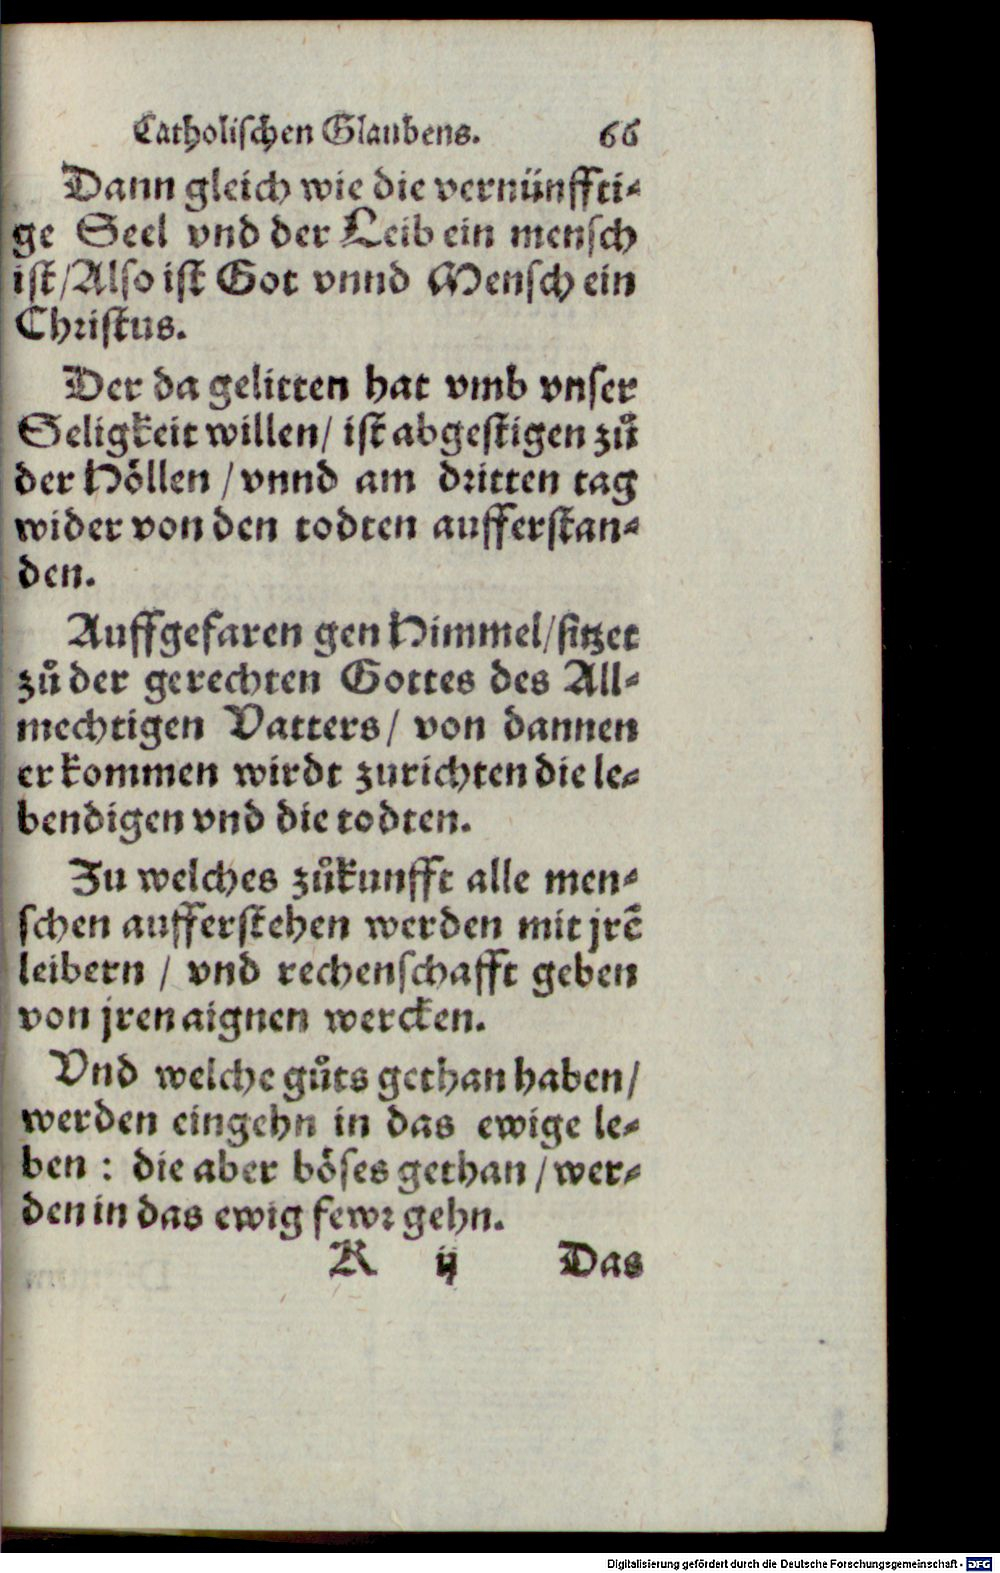 Catholischen Glaubens. 66
Dann gleich wie die vernünffti⸗
ge Seel vnd der Leib ein mensch
ist/Also ist Got vnnd Mensch ein
Christus.
Der da gelitten hat vmb vnser
Seligkeit willen/ ist abgestigen zů
der Höllen /vnnd am dritten tag
wider von den todten aufferstan⸗
den.
Auffgefaren gen Himmel/sitzet
zů der gerechten Gottes des All⸗
mechtigen Vatters/ von dannen
er kommen wirdt zurichten die le⸗
bendigen vnd die todten.
Zu welches zůkunfft alle men⸗
schen aufferstehen werden mit jrē
leibern / vnd rechenschafft geben
von jren aignen wercken.
Vnd welche gůts gethan haben/
werden eingehn in das ewige le⸗
ben : die aber böses gethan /wer⸗
den in das ewig fewr gehn.
K ij Das
Digitalisierung gefördert durch die Deutsche Forschungsgemeinschaft - DFG